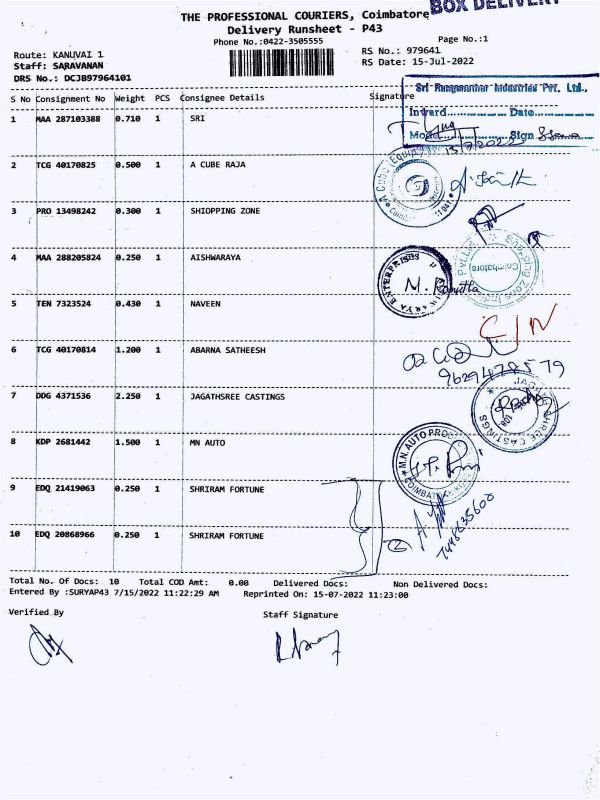 BOX DELIVERY
THE PROFESSIONAL COURIERS, Coimbatore
Delivery Runsheet - P43
Phone No.:0422-3505555
Page No.:1
Route: KANUVAI 1
Staff: SARAVANAN
DRS No.: DCJB97964101
RS No.: 979641
RS Date: 15-Jul-2022
S No Consignment No Weight PCS Consignee Details Signature
Industries Pvt. Ltd.,
Inward Date
Sign
1 MAA 287103388 0.710 1 SRI
2 TCG 40170825 0.500 1 A CUBE RAJA
3 PRO 13498242 0.300 1 SHIOPPING ZONE
4 MAA 288205824 0.250 1 AISHWARAYA
ENTERPRISES
Coimbatore
5 TEN 7323524 0.430 1 NAVEEN
6 TCG 40170814 1.200 1 ABARNA SATHEESH
7 DDG 4371536 2.250 1 JAGATHSREE CASTINGS
8 KDP 2681442 1.500 1 MN AUTO
9 EDQ 21419063 0.250 1 SHRIRAM FORTUNE
10 EDQ 20868966 0.250 1 SHRIRAM FORTUNE
2
Total No. Of Docs: 10 Total COD Amt: 0.00 Delivered Docs: Non Delivered Docs:
Entered By :SURYAP43 7/15/2022 11:22:29 AM Reprinted On: 15-07-2022 11:23:00
Verified By Staff Signature